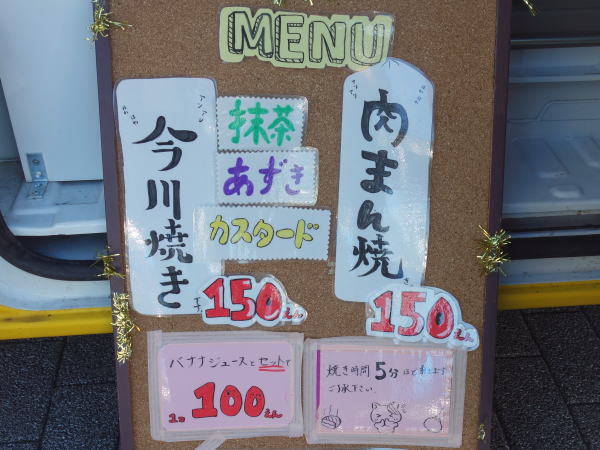 MENU
今川焼き
抹茶
あずき
カスタード
150えん
肉まん焼き
150えん
バナナジュースとセットで
1コ 100えん
焼き時間5分ほど
ご了承下さい